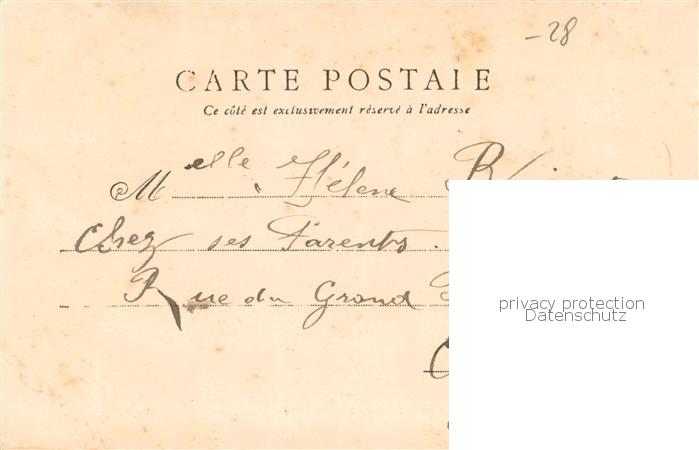 -28
CARTE POSTALE
Ce côté est exclusivement réservé à l'adresse
Melle Hélène
Chez ses Parents.
Rue du Grand
privacy protection
Datenschutz